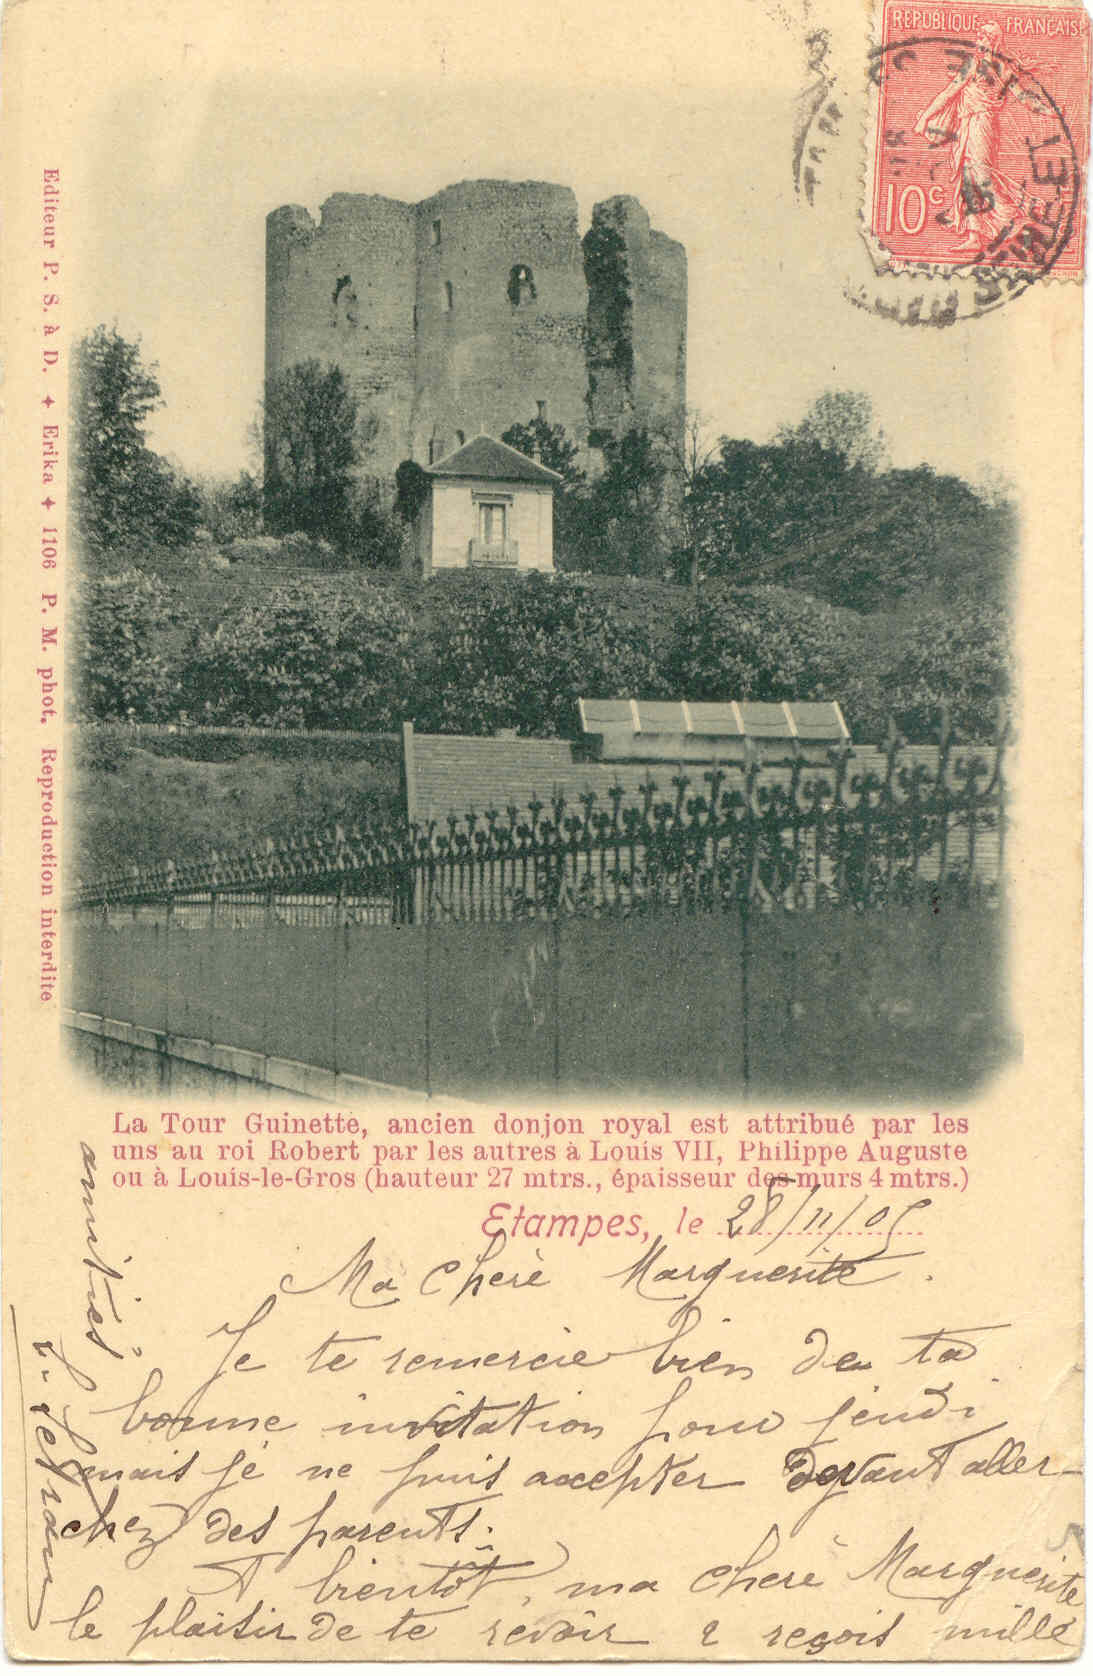 REPUBLIQUE FRANÇAISE
10c
Editeur P. S. à D. ✦ Erika ✦ 1106 P. M. phot. Reproduction interdite
La Tour Guinette, ancien donjon royal est attribué par les
uns au roi Robert par les autres à Louis VII, Philippe Auguste
ou à Louis-le-Gros (hauteur 27 mtrs., épaisseur des murs 4 mtrs.)
Etampes, le 28/11/05
Ma cherè Marguerite.
Je te remercie bien de ta
bonne invitation pour jeudi
mais je ne puis accepter devant aller
chez des parents.
A bientôt, ma cherè Marguerite
le plaisir de te revoir & reçois mille
amitiés